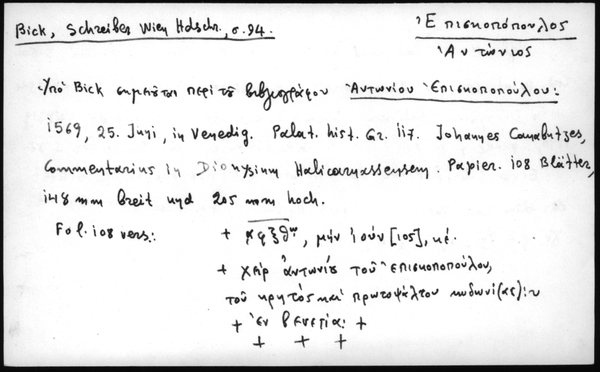 Bick, Schreiber Wien Hdschr., σ. 94.
Ἐπισκοπόπουλος
Ἀντώνιος
Ὑπὸ Bick σημειοῦται περὶ τοῦ βιβλιογράφου Ἀντωνίου Ἐπισκοποπούλου:
1569, 25. Juni, in Venedig. Palat. hist. Gr. 117. Johannes Canabutzes,
Commentarius in Dionysium Halicarnassensem. Papier. 108 Blätter,
148 mm breit und 205 mm hoch.
Fol. 108 vers.: + αφξθω, μην ἰουν [ιος], κέ.
+ χεὶρ ἀντωνίου τοῦ ἐπισκοποπούλου,
τοῦ κρητὸς καὶ πρωτοψάλτου κυδωνί(ας):~
+ Ἐν βενετία: +
+ + +